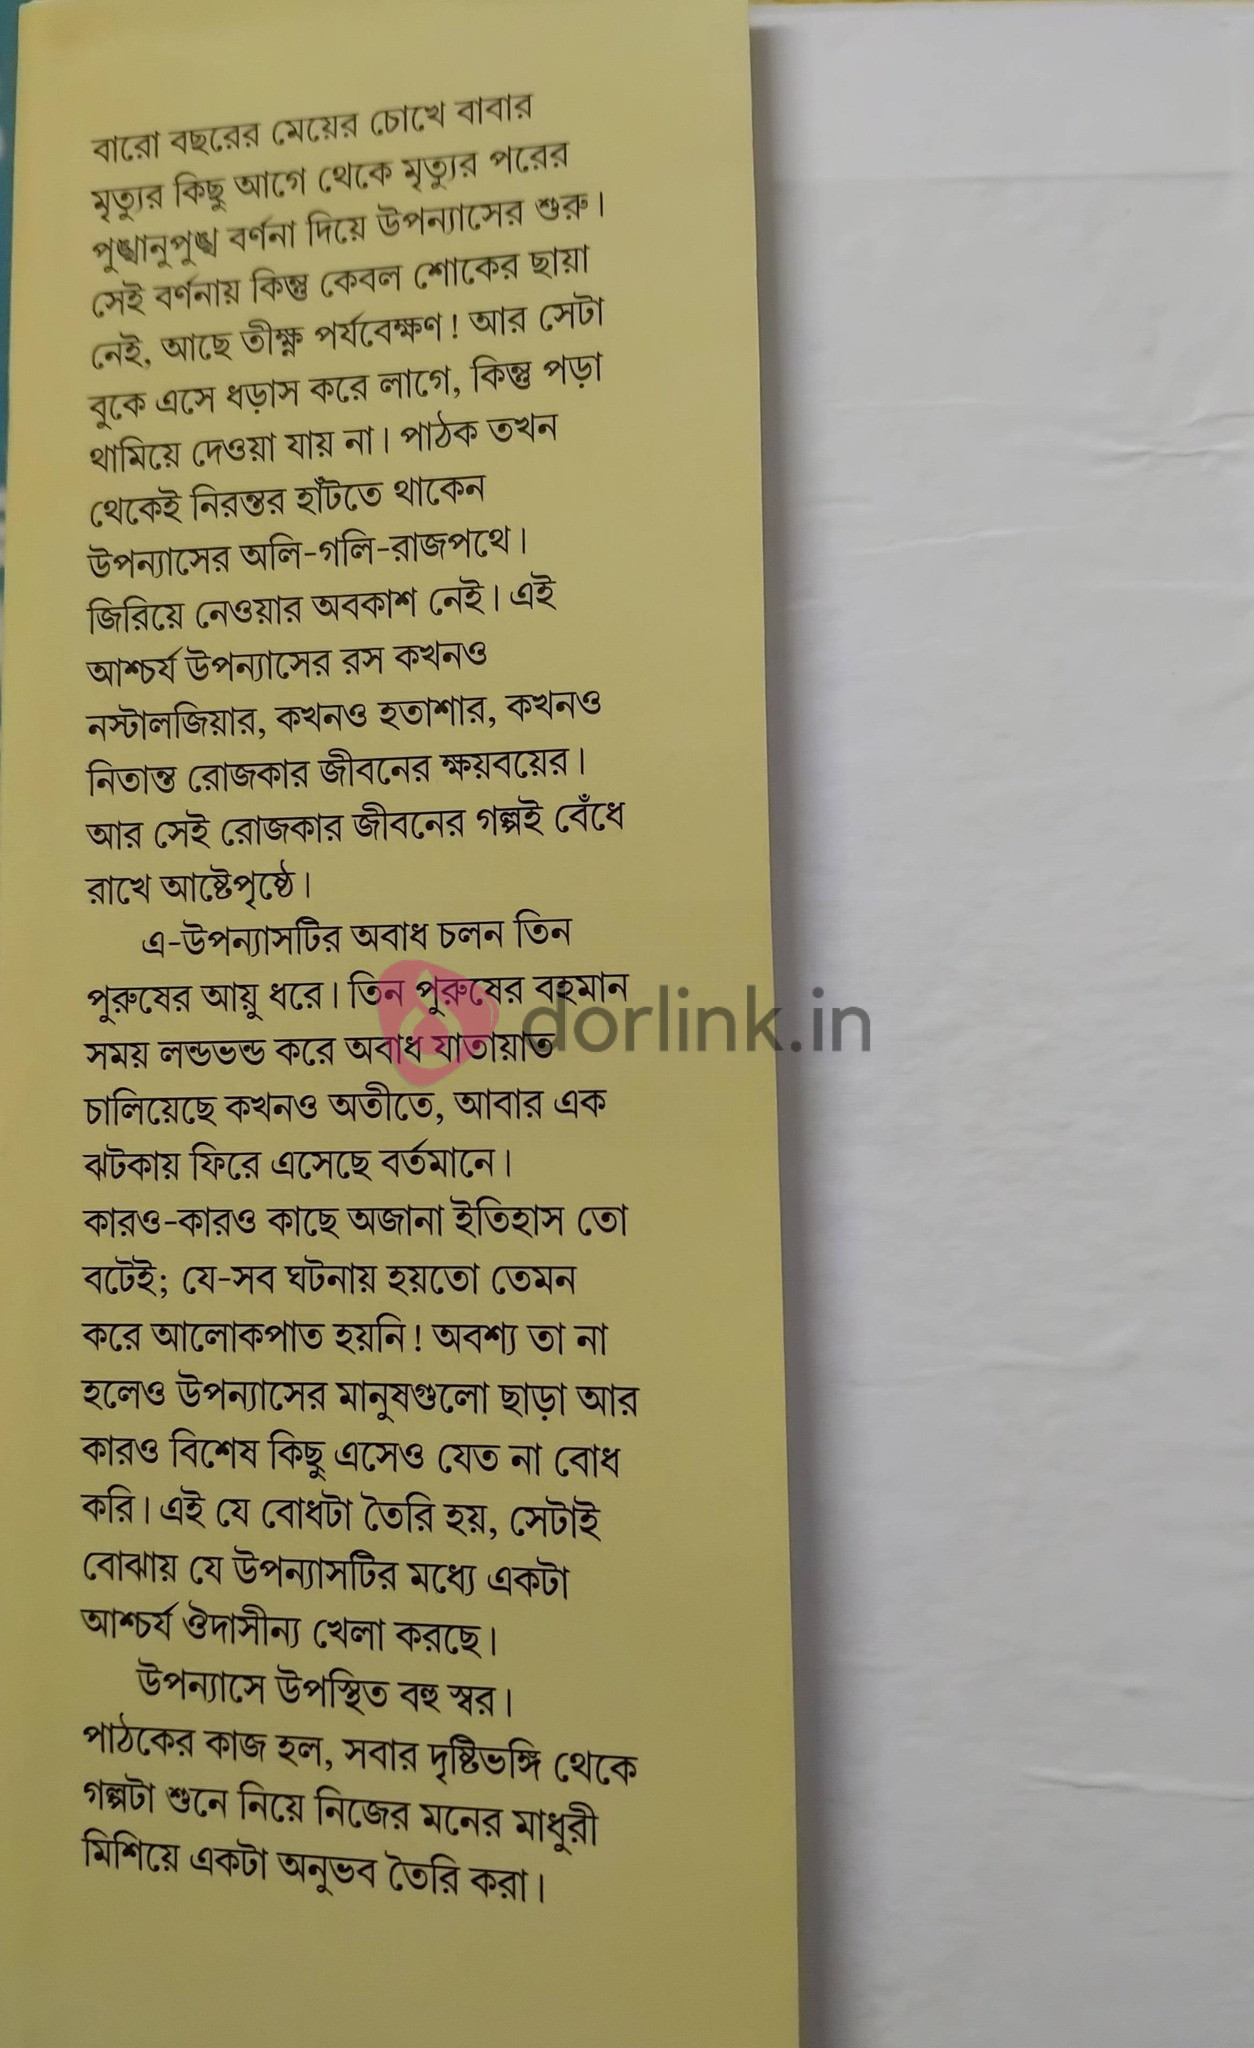 বারো বছরের মেয়ের চোখে বাবার
মৃত্যুর কিছু আগে থেকে মৃত্যুর পরের
পুঙ্খানুপুঙ্খ বর্ণনা দিয়ে উপন্যাসের শুরু।
সেই বর্ণনায় কিন্তু কেবল শোকের ছায়া
নেই, আছে তীক্ষ্ণ পর্যবেক্ষণ! আর সেটা
বুকে এসে ধড়াস করে লাগে, কিন্তু পড়া
থামিয়ে দেওয়া যায় না। পাঠক তখন
থেকেই নিরন্তর হাঁটতে থাকেন
উপন্যাসের অলি-গলি-রাজপথে।
জিরিয়ে নেওয়ার অবকাশ নেই। এই
আশ্চর্য উপন্যাসের রস কখনও
নস্টালজিয়ার, কখনও হতাশার, কখনও
নিতান্ত রোজকার জীবনের ক্ষয়বয়ের।
আর সেই রোজকার জীবনের গল্পই বেঁধে
রাখে আষ্টেপৃষ্ঠে।
এ-উপন্যাসটির অবাধ চলন তিন
পুরুষের আয়ু ধরে। তিন পুরুষের বহমান
সময় লন্ডভন্ড করে অবাধ যাতায়াত
চালিয়েছে কখনও অতীতে, আবার এক
ঝটকায় ফিরে এসেছে বর্তমানে।
কারও-কারও কাছে অজানা ইতিহাস তো
বটেই; যে-সব ঘটনায় হয়তো তেমন
করে আলোকপাত হয়নি! অবশ্য তা না
হলেও উপন্যাসের মানুষগুলো ছাড়া আর
কারও বিশেষ কিছু এসেও যেত না বোধ
করি। এই যে বোধটা তৈরি হয়, সেটাই
বোঝায় যে উপন্যাসটির মধ্যে একটা
আশ্চর্য ঔদাসীন্য খেলা করছে।
উপন্যাসে উপস্থিত বহু স্বর।
পাঠকের কাজ হল, সবার দৃষ্টিভঙ্গি থেকে
গল্পটা শুনে নিয়ে নিজের মনের মাধুরী
মিশিয়ে একটা অনুভব তৈরি করা।
dorlink.in